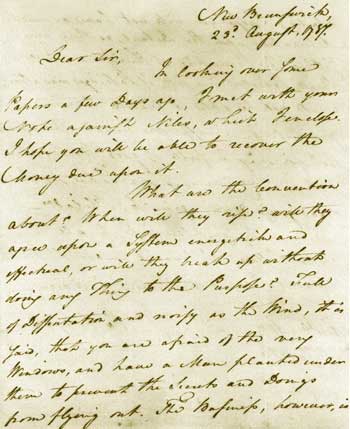 New Brunswick,
23d. August, 1787.
Dear Sir,
In looking over some
Papers a few Days ago, I met with your
Note against Niles, which I enclose.
I hope you will be able to recover the
Money due upon it.
What are the Convention
about? When will they rise? Will they
agree upon a System energetick and
effectual, or will they break up without
doing any Thing to the Purpose? Full
of Disputation and noisy as the Wind, it is
said, that you are afraid of the very
Windows, and have a Man planted under
them to prevent the Secrets and Doings
from flying out. The Business, however, is